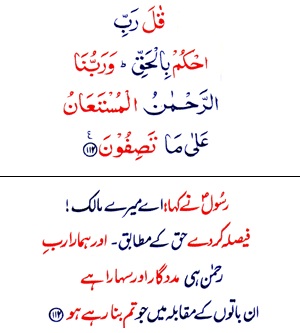 قٰلَ رَبِّ
احْكُمْ بِالْحَقِّ ؕ وَرَبُّنَا
الرَّحْمٰنُ الْمُسْتَعَانُ
عَلٰی مَا تَصِفُوْنَ ﴿۱۱۲﴾
رسُولؐ نے کہا: اے میرے مالک!
فیصلہ کردے حق کے مطابق۔ اور ہمارا ربِ
رحمٰن ہی مددگار اور سہارا ہے
ان باتوں کے مقابلہ میں جو تم بنا رہے ہو ﴿۱۱۲﴾